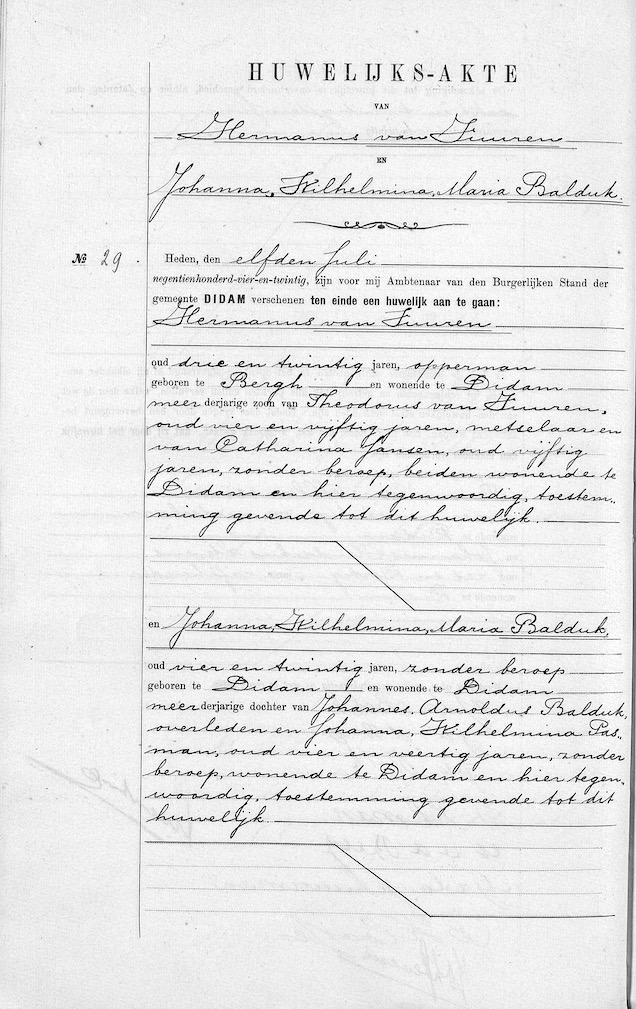 HUWELIJKS-AKTE
VAN
Hermanus van Fuuren
EN
Johanna, Wilhelmina, Maria Balduk.
№ 29.
Heden, den elfden Juli
negentienhonderd-vier-en-twintig, zijn voor mij Ambtenaar van den Burgerlijken Stand der
gemeente DIDAM verschenen ten einde een huwelijk aan te gaan:
Hermanus van Fuuren
oud drie en twintig jaren, opperman
geboren te Bergh en wonende te Didam
meerderjarige zoon van Theodorus van Fuuren,
oud vier en vijftig jaren, metselaar en
van Catharina Jansen, oud vijftig
jaren, zonder beroep, beiden wonende te
Didam en hier tegenwoordig, toestem-
ming gevende tot dit huwelijk.
en Johanna, Wilhelmina, Maria Balduk,
oud vier en twintig jaren, zonder beroep
geboren te Didam en wonende te Didam
meerderjarige dochter van Johannes, Arnoldus Balduk,
overleden en Johanna, Wilhelmina Pas-
man, oud vier en veertig jaren, zonder
beroep, wonende te Didam en hier tegen-
woordig, toestemming gevende tot dit
huwelijk.